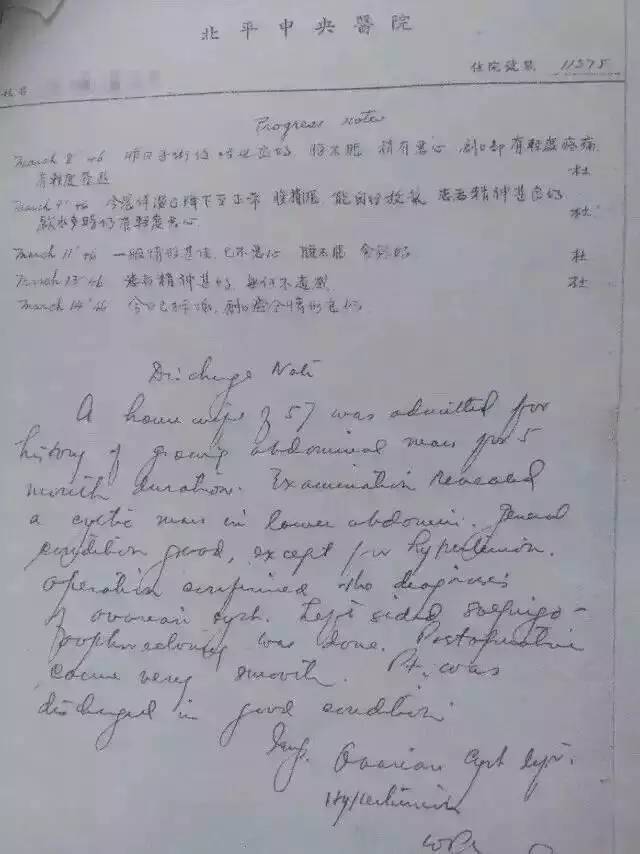 北平中央醫院
住院號數 11375
Progress Notes
March 8 '46 昨日手術後 腹不脹 稍有惡心 創口部有輕度疼痛
杜
March 9 '46 今晨体温已降下至正常 腹稍脹 能自行放氣 患者精神甚良好
飲水多時仍有輕度惡心 杜
March 11 '46 一般情形甚佳 已不惡心 腹不脹 食慾好 杜
March 13 '46 患者精神甚好 無何不適處 杜
March 14 '46 今日已拆線 創口癒合情形良好
Discharge Note
A house wife of 57 was admitted for
history of growing abdominal mass for 5
month duration. Examination revealed
a cystic mass in lower abdomen. General
condition good, except for hypertension.
Operation confirmed the diagnosis
of ovarian cyst. Left sided salpingo-
oophorectomy was done. Postoperative
course very smooth. Pt. was
discharged in good condition.
Imp. Ovarian Cyst left.
Hypertension